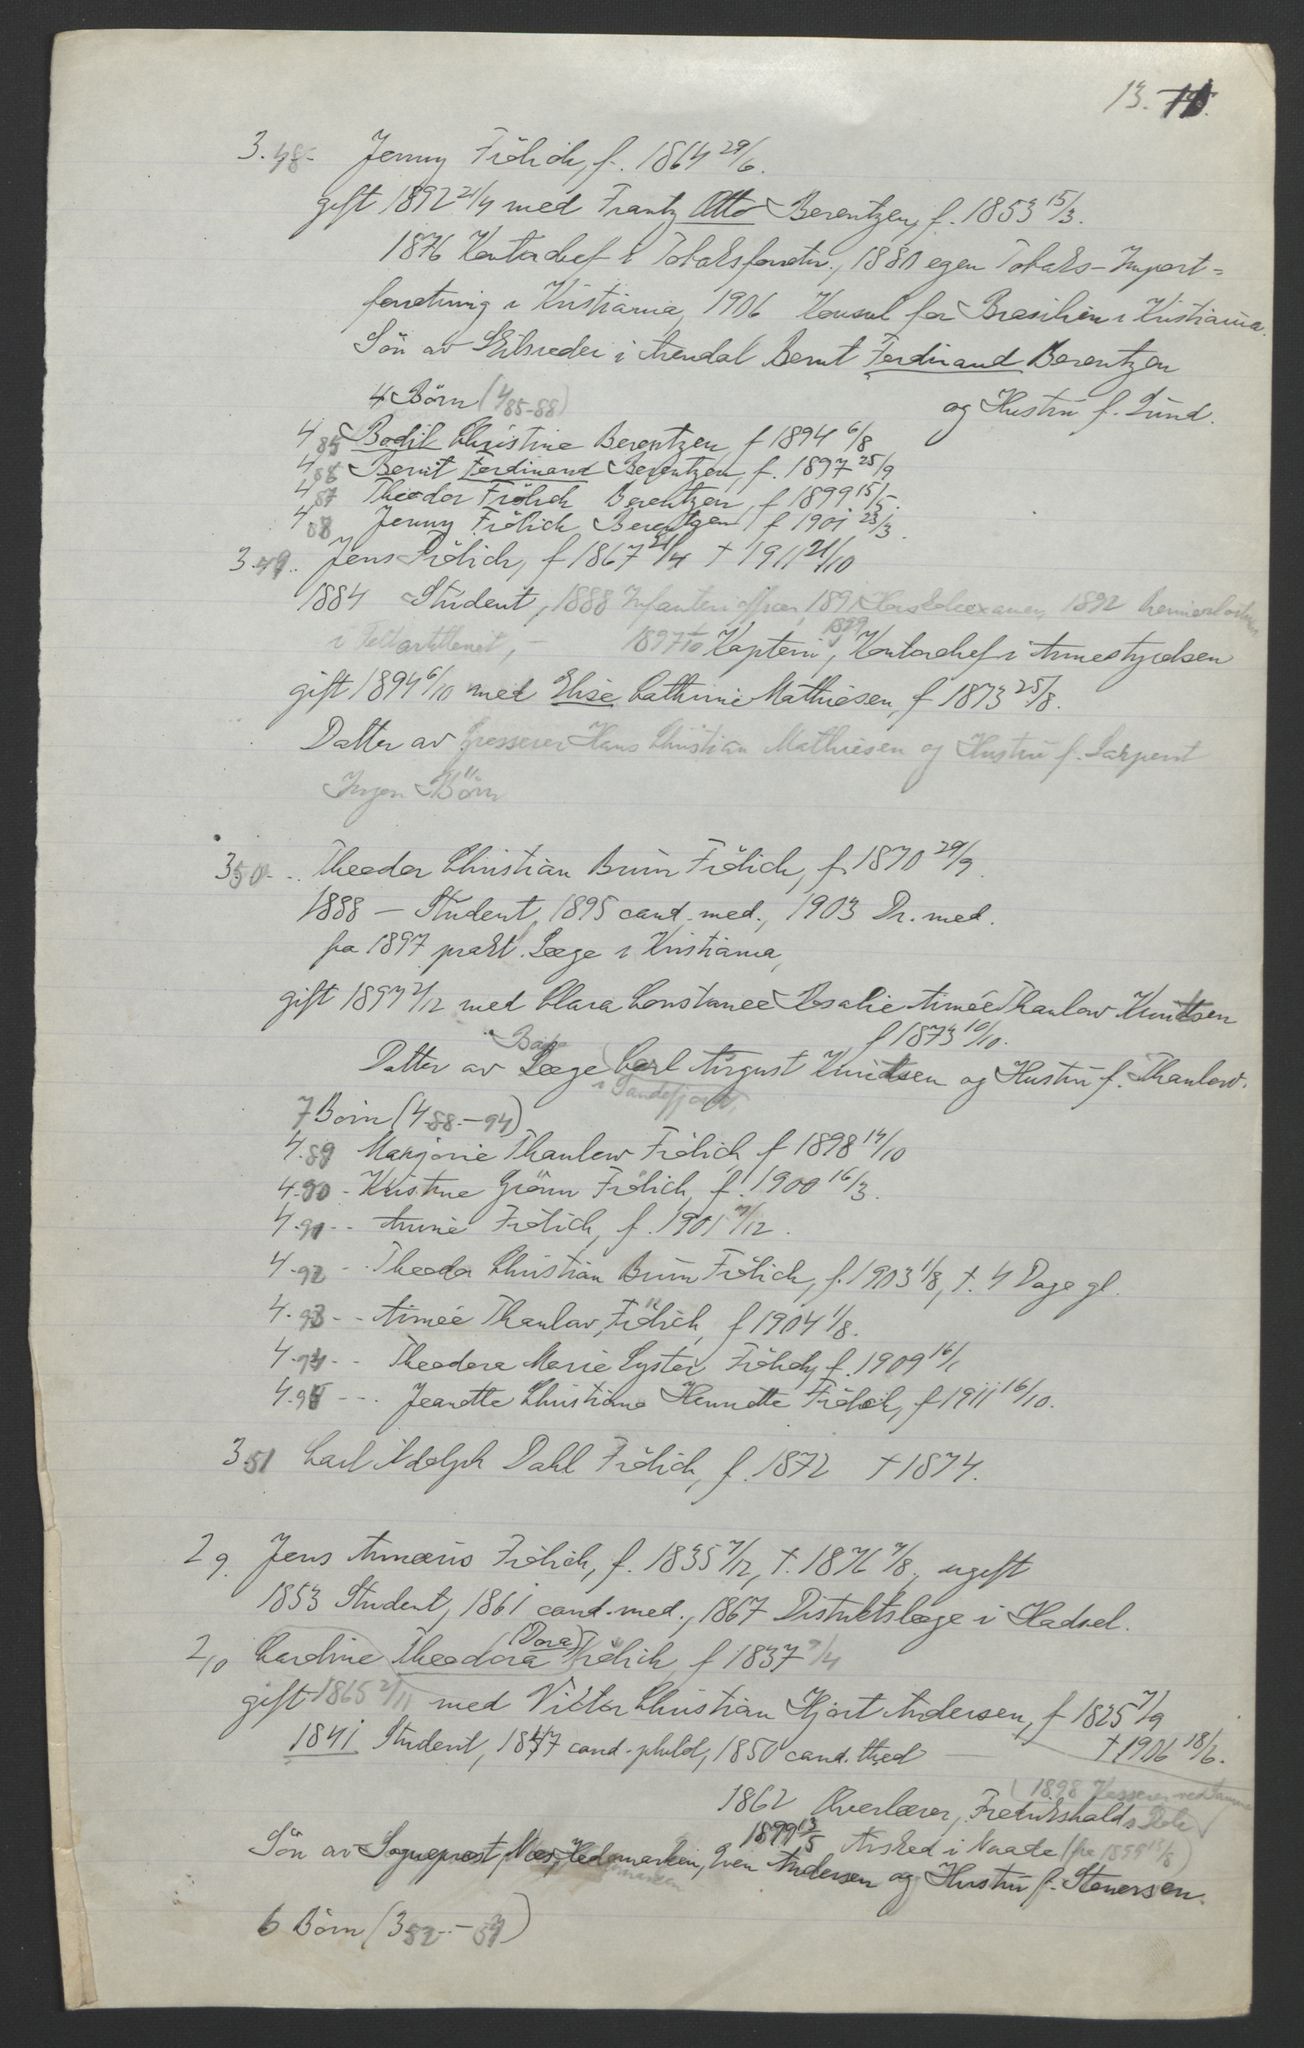 13.
3.48. Jenny Frölich, f. 1864 29/6.
gift 1892 21/9 med Frantz Otto Berentzen, f. 1853 15/3.
1876 Kontorchef i Tobaksforretn., 1880 egen Tobaks-Import-
forretning i Kristiania, 1906 Konsul for Brasilien i Kristiania.
Sön av Skibsreder i Arendal Bernt Ferdinand Berentzen
og Hustru f. Lund.
4 Börn (4 85-88)
4 85 Bodil Christine Berentzen, f 1894 6/8
4 86 Bernt Ferdinand Berentzen, f. 1897 25/9
4 87 Theodor Frölich Berentzen, f. 1899 15/5.
4 88 Jenny Frölich Berentzen f 1901 23/3.
3.49. Jens Frölich, f 1867 21/4 † 1911 21/10
1884 Student, 1888 Infanteriofficer, 1891 1892 Premierløitnant
i Feltartilleriet, - 1897 1/10 Kaptein, 1899 Kontorchef i Armestyrelsen
gift 1894 6/10 med Elise Cathrine Mathiesen, f 1873 25/8.
Datter av Grosserer Hans Christian Mathiesen og Hustru f. Sarpent
Ingen Börn
3 50 - . Theodor Christian Brun Frölich, f. 1870 29/9.
1888 - Student, 1895 cand. med., 1903 Dr. med.
fra 1897 prakt. Læge i Kristiania,
gift 1897 2/12 med Clara Constance Rosalie Aimée Thaulow Knudtsen
f 1873 10/10.
Datter av Bad Læge Carl August Knudtsen og Hustru f. Thaulow.
i Sandefjord,
7 Börn (4.88.-94)
4.89 Marjorie Thaulow Frölich f 1898 14/10
4.90 - Kristine Grönn Frölich, f. 1900 16/3.
4.91 - - Annie Frölich, f. 1901 7/12.
4.92 - - Theodor Christian Brun Frölich, f. 1903 1/8, †. 4 Dage gl.
4.93 - - Aimée Thaulow Frölich, f 1904 1/8.
4.94 - - Theodora Marie Lyster Frölich, f. 1909 16/1
4.95 - - Jeanette Christiane Henriette Frölich, f 1911 16/10.
3 51 Carl Adolph Dahl Frölich, f. 1872 † 1874.
2 9. Jens Amæus Frölich, f. 1835 7/12, †. 1876 7/8, ugift
1853 Student, 1861 cand. med., 1867 Distriktslæge i Hadsel.
2 10 Caroline Theodora (Dora) Frölich, f 1837 9/4
gift 1865 2/11 med Victor Christian Hjort Andersen, f 1825 7/9
1841 Student, 1847 cand. philol, 1850 cand. theol † 1906 18/6.
1862 Overlærer, Fredrikshalds Skole (1898 Kasserer ved samme
1899 13/5 Avsked i Naade (fra 1899 13/8)
Sön av Sogneprest, Næs, Hedemarken, Even Andersen og Hustru f. Stenersen.
6 Börn (3 52-57)